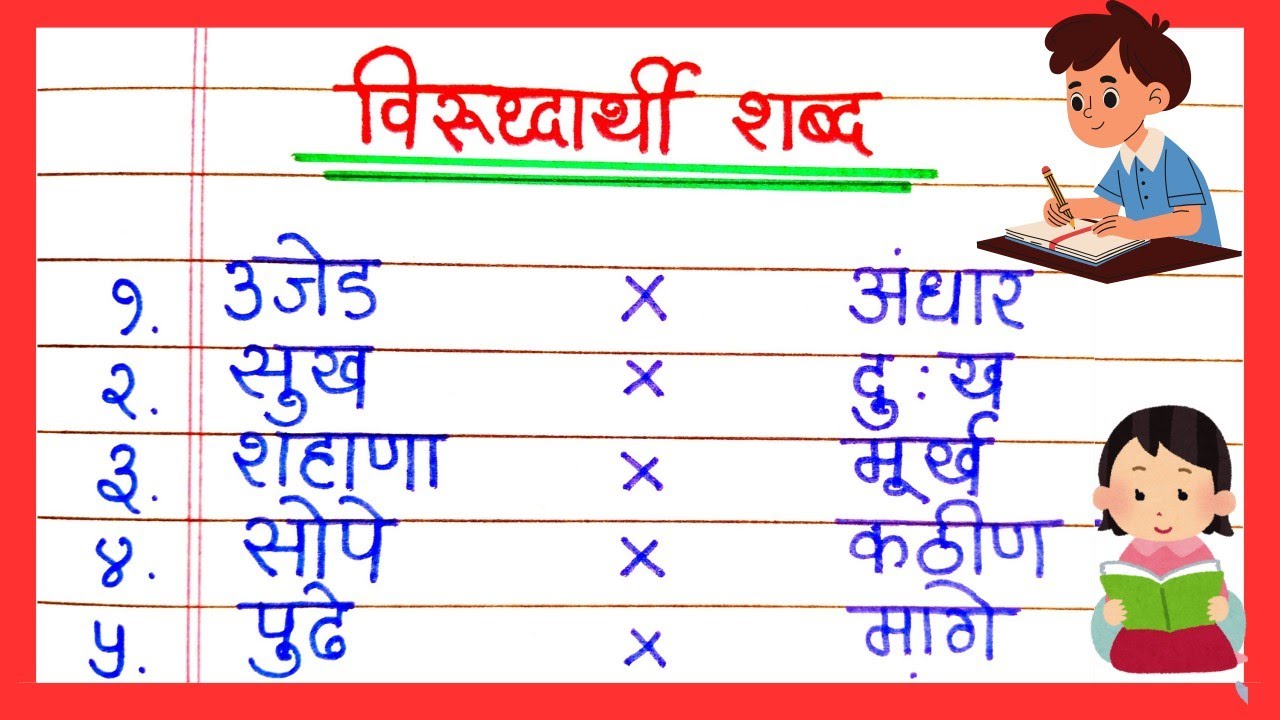 विरूध्दार्थी शब्द
१. उजेड × अंधार
२. सुख × दु:ख
३. शहाणा × मूर्ख
४. सोपे × कठीण
५. पुढे × मागे